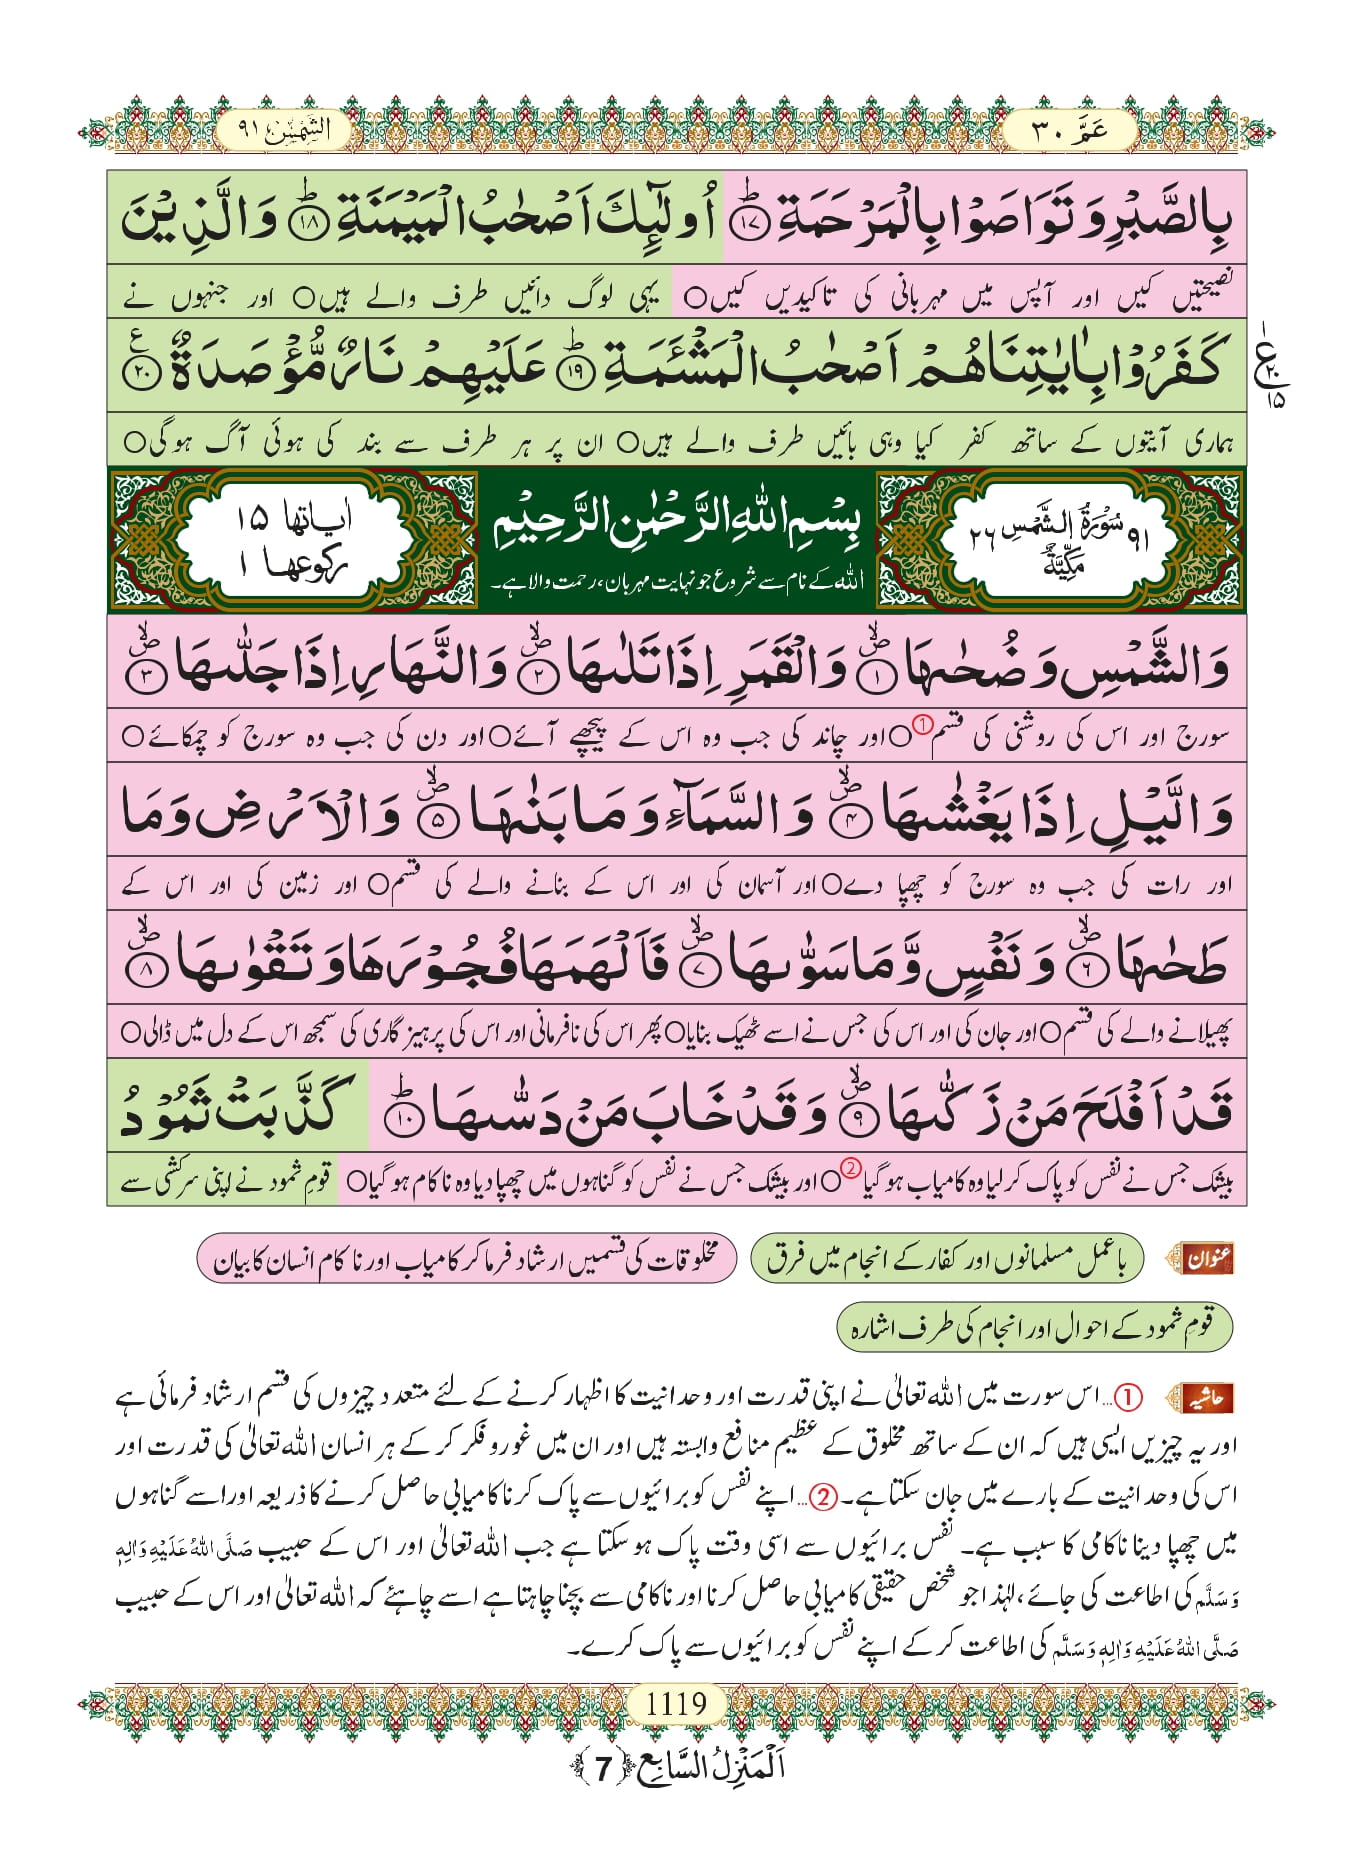 عَمَّ ٣٠
الشَّمْسِ ٩١
بِالصَّبْرِ وَ تَوَاصَوْا بِالْمَرْحَمَةِؕ ۱۷ اُولٰٓىٕكَ اَصْحٰبُ الْمَیْمَنَةِؕ ۱۸ وَ الَّذِیْنَ
نصیحتیں کیں اور آپس میں مہربانی کی تاکیدیں کیں○ یہی لوگ دائیں طرف والے ہیں○ اور جنہوں نے
كَفَرُوْا بِاٰیٰتِنَا هُمْ اَصْحٰبُ الْمَشْـَٔمَةِؕ ۱۹ عَلَیْهِمْ نَارٌ مُّؤْصَدَةٌ۠ ۲۰
ع ۱ ۲۰ ۱۵
ہماری آیتوں کے ساتھ کفر کیا وہی بائیں طرف والے ہیں○ ان پر ہر طرف سے بند کی ہوئی آگ ہوگی○
٩١ سُوْرَةُ الشَّمْسِ ٢٦
مَكِّیَّةٌ
بِسْمِ اللهِ الرَّحْمٰنِ الرَّحِیْمِ
اللہ کے نام سے شروع جو نہایت مہربان، رحمت والا ہے۔
اٰیاتها ١٥
رکوعها ١
وَ الشَّمْسِ وَ ضُحٰىهَاﭪ ۱ وَ الْقَمَرِ اِذَا تَلٰىهَاﭪ ۲ وَ النَّهَارِ اِذَا جَلّٰىهَاﭪ ۳
سورج اور اس کی روشنی کی قسم① ○اور چاند کی جب وہ اس کے پیچھے آئے○ اور دن کی جب وہ سورج کو چمکائے○
وَ الَّیْلِ اِذَا یَغْشٰىهَاﭪ ۴ وَ السَّمَآءِ وَ مَا بَنٰىهَاﭪ ۵ وَ الْاَرْضِ وَ مَا
اور رات کی جب وہ سورج کو چھپا دے○ اور آسمان کی اور اس کے بنانے والے کی قسم○ اور زمین کی اور اس کے
طَحٰىهَاﭪ ۶ وَ نَفْسٍ وَّ مَا سَوّٰىهَاﭪ ۷ فَاَلْهَمَهَا فُجُوْرَهَا وَ تَقْوٰىهَاﭪ ۸
پھیلانے والے کی قسم○ اور جان کی اور اس کی جس نے اسے ٹھیک بنایا○ پھر اس کی نافرمانی اور اس کی پرہیز گاری کی سمجھ اس کے دل میں ڈالی○
قَدْ اَفْلَحَ مَنْ زَكّٰىهَاﭪ ۹ وَ قَدْ خَابَ مَنْ دَسّٰىهَاؕ ۱۰ كَذَّبَتْ ثَمُوْدُ
بیشک جس نے نفس کو پاک کرلیا وہ کامیاب ہوگیا② ○اور بیشک جس نے نفس کو گناہوں میں چھپا دیا وہ ناکام ہوگیا○ قومِ ثمود نے اپنی سرکشی سے
عنوان باعمل مسلمانوں اور کفار کے انجام میں فرق مخلوقات کی قسمیں ارشاد فرما کر کامیاب اور ناکام انسان کا بیان
قومِ ثمود کے احوال اور انجام کی طرف اشارہ
حاشیہ ①...اس سورت میں اللہ تعالیٰ نے اپنی قدرت اور وحدانیت کا اظہار کرنے کے لئے متعدد چیزوں کی قسم ارشاد فرمائی ہے
اور یہ چیزیں ایسی ہیں کہ ان کے ساتھ مخلوق کے عظیم منافع وابستہ ہیں اور ان میں غور و فکر کر کے ہر انسان اللہ تعالیٰ کی قدرت اور
اس کی وحدانیت کے بارے میں جان سکتا ہے۔ ②...اپنے نفس کو برائیوں سے پاک کرنا کامیابی حاصل کرنے کا ذریعہ اور اسے گناہوں
میں چھپا دینا ناکامی کا سبب ہے۔ نفس برائیوں سے اسی وقت پاک ہو سکتا ہے جب اللہ تعالیٰ اور اس کے حبیب صَلَّی اللہُ عَلَیْهِ وَاٰلِهٖ
وَسَلَّم کی اطاعت کی جائے، لہٰذا جو شخص حقیقی کامیابی حاصل کرنا اور ناکامی سے بچنا چاہتا ہے اسے چاہئے کہ اللہ تعالیٰ اور اس کے حبیب
صَلَّی اللہُ عَلَیْهِ وَاٰلِهٖ وَسَلَّم کی اطاعت کر کے اپنے نفس کو برائیوں سے پاک کرے۔
1119
اَلْمَنْزِلُ السَّابِع ﴿7﴾